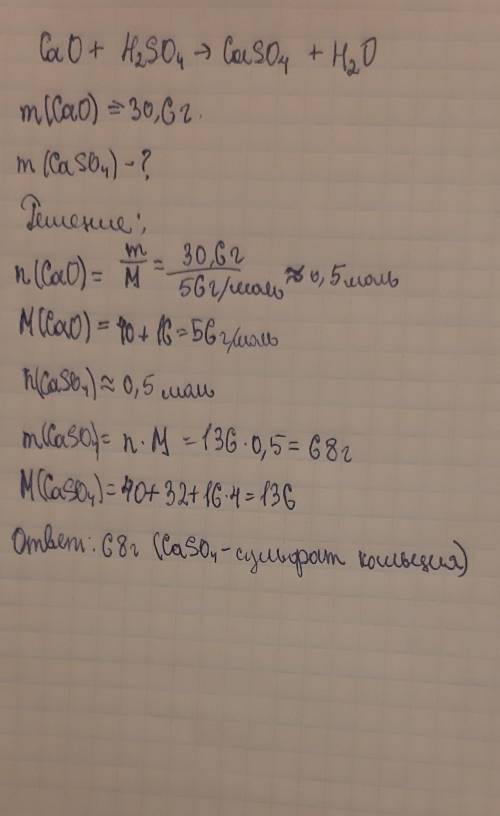 CaO + H₂SO₄ → CaSO₄ + H₂O
m(CaO) = 30,6г.
m(CaSO₄) - ?
Решение:
n(CaO) = m/M = 30,6г/56г/моль ≈ 0,5моль
M(CaO) = 40 + 16 = 56г/моль
n(CaSO₄) ≈ 0,5 моль
m(CaSO₄) = n · M = 136 · 0,5 = 68г
M(CaSO₄) = 40 + 32 + 16 · 4 = 136
Ответ: 68г (CaSO₄ - сульфат кальция)